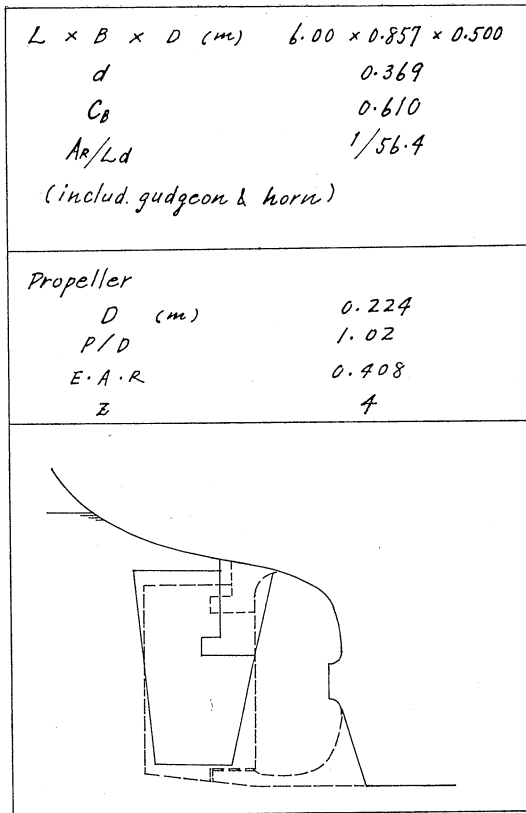 L × B × D (m) 6.00 × 0.857 × 0.500
d 0.369
CB 0.610
AR/Ld 1/56.4
(includ. gudgeon & horn)
Propeller
D (m) 0.224
P/D 1.02
E.A.R 0.408
Z 4